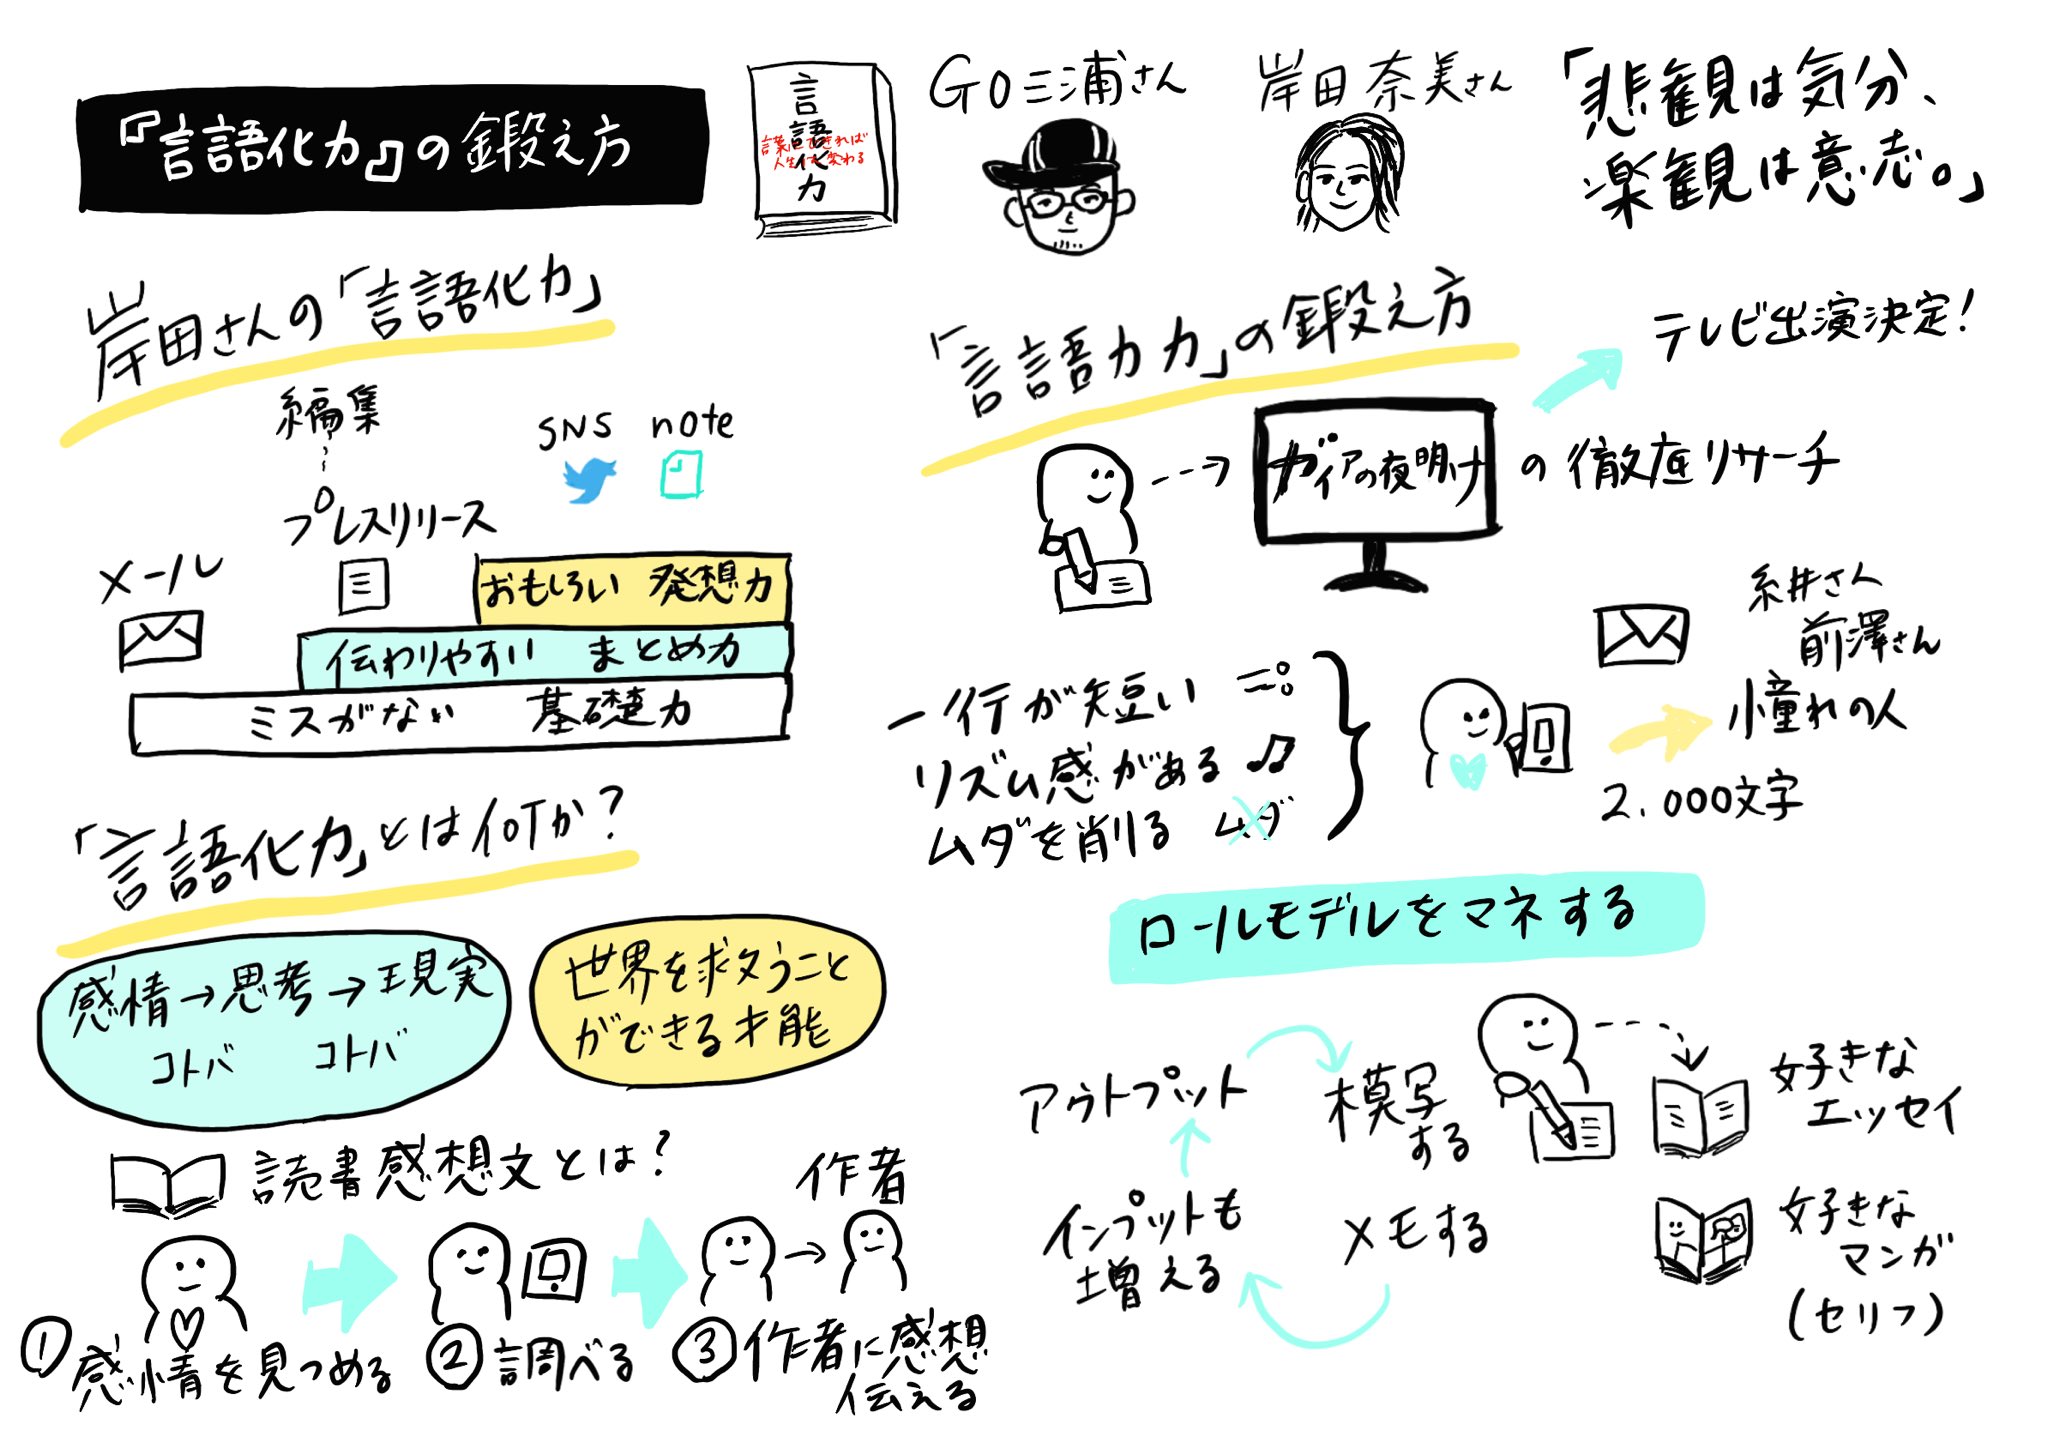 『言語化力』の鍛え方
言語化力
言葉にできれば
人生は変わる
GO三浦さん
岸田奈美さん
「悲観は気分、
楽観は意志。」
岸田さんの「言語化力」
編集
SNS
note
プレスリリース
メール
おもしろい 発想力
伝わりやすい まとめ力
ミスがない 基礎力
「言語化力」とは何か?
感情→思考→現実
コトバ コトバ
世界を救うこと
ができる才能
読書感想文とは?
作者
①感情を見つめる
②調べる
③作者に感想
伝える
「言語力力」の鍛え方
テレビ出演決定!
ガイアの夜明け
の徹底リサーチ
一行が短い
リズム感がある
ムダを削る ムダ
糸井さん
前澤さん
憧れの人
2.000文字
ロールモデルをマネする
アウトプット
模写
する
メモする
インプットも
増える
好きな
エッセイ
好きな
マンガ
(セリフ)